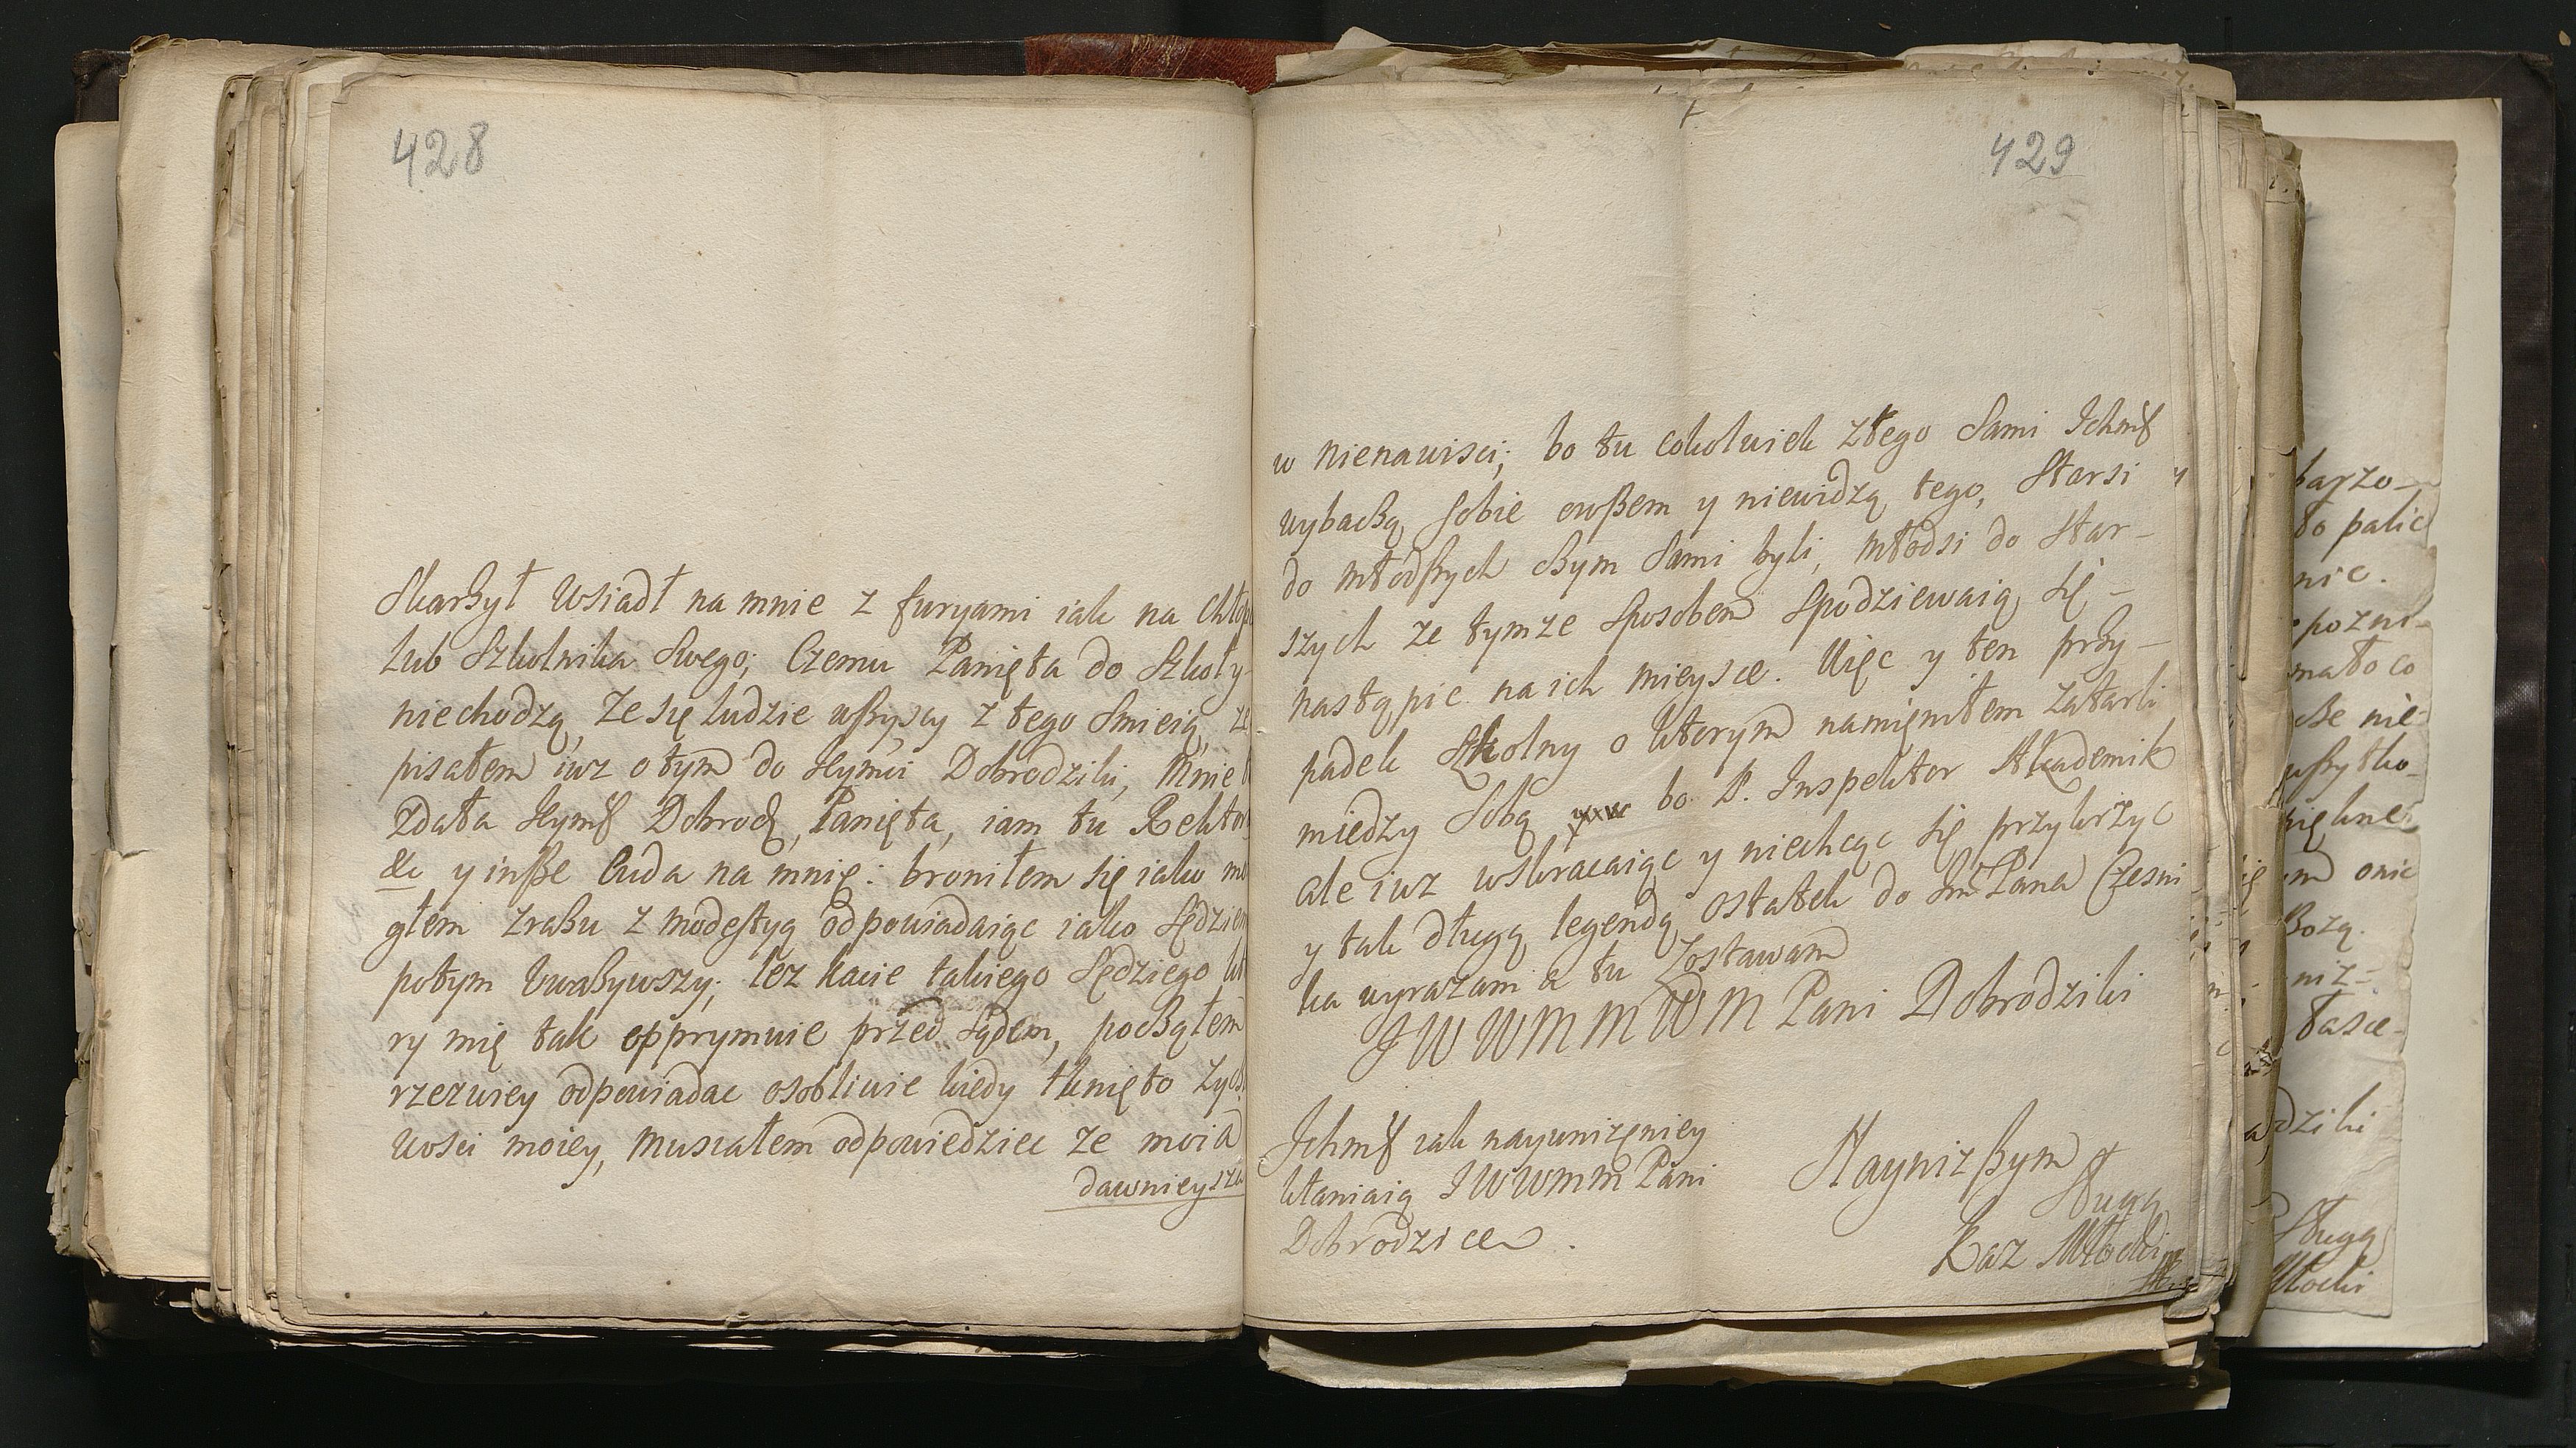 428
Skarżył wsiadł na mnie z furyami iak na chłop
lub Szkolnika Swego; Czemu Panięta do Szkoły
niechodzą, że się ludzie wszyscy z tego smieią, że
pisałem iuz o tym do Jeymci Dobrodziki, Mnie
zdała Jeymść Dobrodz, Panięta, iam tu Rektor
&c y insze Cuda na mnię: broniłem się iako mo
głem zrazu z modestyą odpowiadaiąc iako Sędziem
potym Uważywszy; lez kacie takiego Sędziego kto
ry mię tak opprymuie przed Sądem, począłem
rzezwiey odpowiadac osobliwie kiedy tknięto życz
wosci moiey, musiałem odpowiedziec ze moia
dawnieysza
429
w nienawisci; bo tu cokolwiek złego Sami Ichmść
wybaczą sobie owszem y niewidzą tego, Starsi y
do młodszych czym Sami byli, młodsi do Star-
szych ze tymze sposobem spodziewaią się -
nastąpic na ich mieysce. Więc y ten przy-
padek Szkolny o ktorym namięniłem zatarli
miedzy Sobą bo P. Inspektor Akademik
ale iuz wskracaiąc y niechcąc się przykrzyc
y tak długą legendą ostatek do Jmć Pana Czesni
ka wyrazam a tu Zostawam
J W W M M W M Pani Dobrodziki
Ichmść iak nayunizęniey
kłaniaią J W W M M Pani
Dobrodzice .
Nayniższym
Sługą
Kaz Młocki
barzo-
to palic
nic.
pozni-
mało co
cże nie-
wszytko-
onic
Bozą.
niz-
łasce-
dziki
Sługą
Młocki